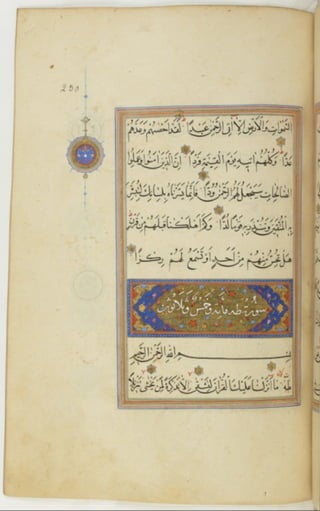 250
السَّمٰوَاتِ وَالْاَرْضِ اِلَّا اٰتِى الرَّحْمٰنِ عَبْدًا لَقَدْ اَحْصٰيهُمْ وَعَدَّهُمْ
عَدًّا وَكُلُّهُمْ اٰتِيهِ يَوْمَ الْقِيٰمَةِ فَرْدًا اِنَّ الَّذِينَ اٰمَنُوا وَعَمِلُوا
الصَّالِحَاتِ سَيَجْعَلُ لَهُمُ الرَّحْمٰنُ وُدًّا فَاِنَّمَا يَسَّرْنَاهُ بِلِسَانِكَ لِتُبَشِّرَ
بِهِ الْمُتَّقِينَ وَتُنْذِرَ بِهِ قَوْمًا لُدًّا وَكَمْ اَهْلَكْنَا قَبْلَهُمْ مِنْ قَرْنٍ
هَلْ تُحِسُّ مِنْهُمْ مِنْ اَحَدٍ اَوْ تَسْمَعُ لَهُمْ رِكْزًا
سورة طه مائة وخمس وثلاثون
بِسْمِ اللهِ الرَّحْمٰنِ الرَّحِيمِ
طٰهٰ مَا اَنْزَلْنَا عَلَيْكَ الْقُرْاٰنَ لِتَشْقٰى اِلَّا تَذْكِرَةً لِمَنْ يَخْشٰى تَنْزِيلًا